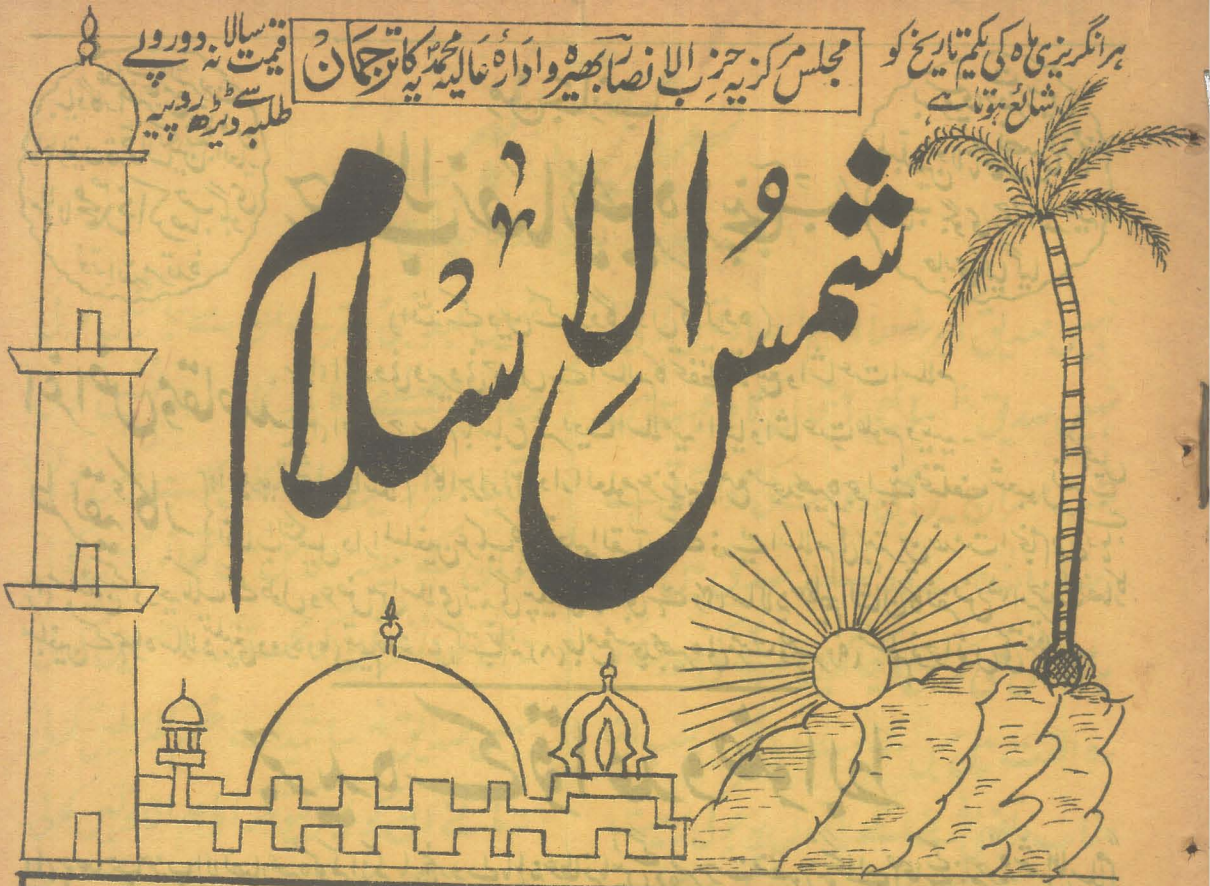 ہر انگریزی ماہ کی یکم تاریخ کو
شائع ہوتا ہے
مجلس مرکزیہ حزب الانصار بھیرہ و ادارہ عالیہ محمدیہ کا ترجمان
قیمت سالانہ دو روپے
طلبہ سے ڈیڑھ روپیہ
شمس الاسلام